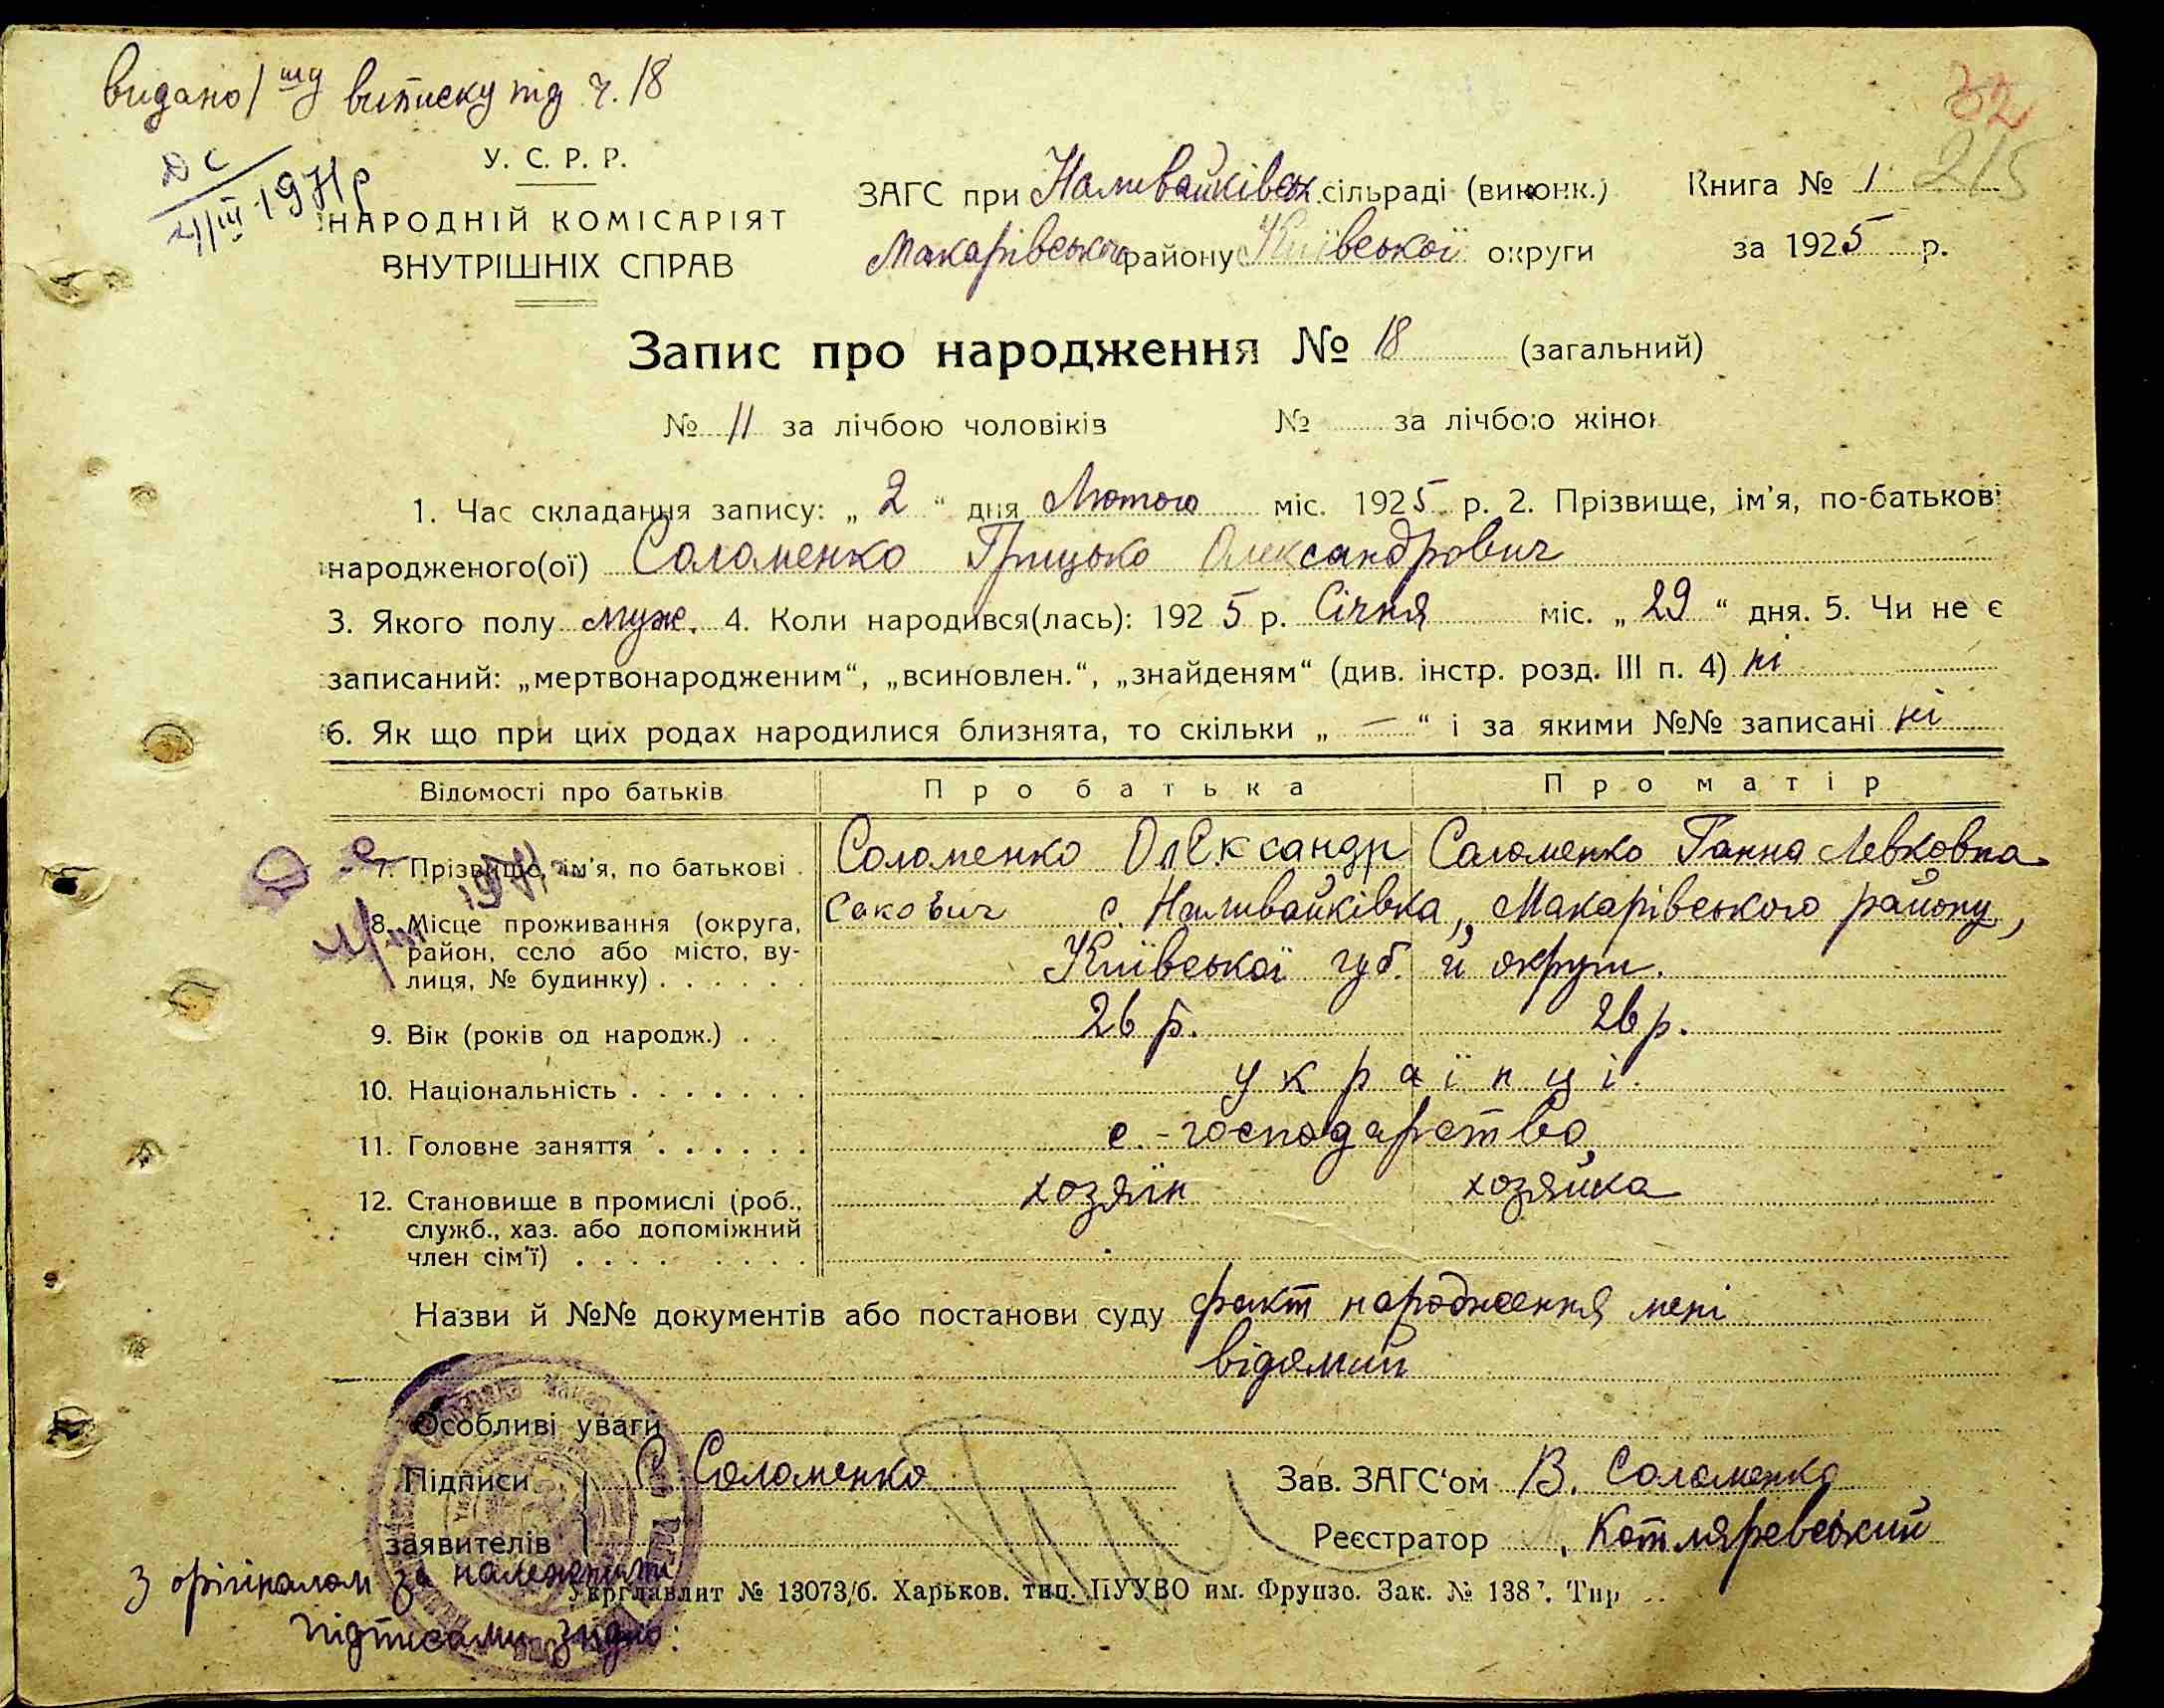 видано 1шу виписку під ч. 18
32
215
ДС
У. С. Р. Р.
1971р
НАРОДНІЙ КОМІСАРІЯТ
ВНУТРІШНІХ СПРАВ
ЗАГС при Наливайківськ. сільраді (виконк.) Книга № 1
Макарівського району Київської округи за 1925 р.
Запис про народження № 18 (загальний)
№ 11 за лічбою чоловіків № за лічбою жінок
1. Час складання запису: „ 2 “ дня Лютого міс. 1925 р. 2. Прізвище, ім'я, по-батькові
народженого(ої) Соломенко Грицько Олександрович
3. Якого полу муж. 4. Коли народився(лась): 1925 р. Січня міс. „ 29 “ дня. 5. Чи не є
записаний: „мертвонародженим“, „всиновлен.“, „знайденям“ (див. інстр. розд. III п. 4) ні
6. Як що при цих родах народилися близнята, то скільки „ — “ і за якими №№ записані ні
Відомості про батьків Про батька Про матір
7. Прізвище, ім'я, по батькові . Соломенко Олександр Соломенко Ганна Левковна
8. Місце проживання (округа, Сакович с. Наливайківка, Макарівського району,
район, село або місто, ву-
лиця, № будинку) . . . . . . Київської губ. й округи.
9. Вік (років од народж.) . . 26 р. 26 р.
10. Національність . . . . . . . українці.
11. Головне заняття . . . . . . с.-господарство
12. Становище в промислі (роб., хозяїн хозяйка
служб., хаз. або допоміжний
член сім'ї) . . . . . . . .
Назви й №№ документів або постанови суду факт народження мені
відомий
Особливі уваги
Підписи С. Соломенко Зав. ЗАГС'ом В. Соломенко
заявителів Реєстратор Котляревський
З орігіналом за належними
Укрглавлит № 13073/б. Харьков. тип. ПУУВО им. Фрунзе. Зак. № 138
підписами згідно: